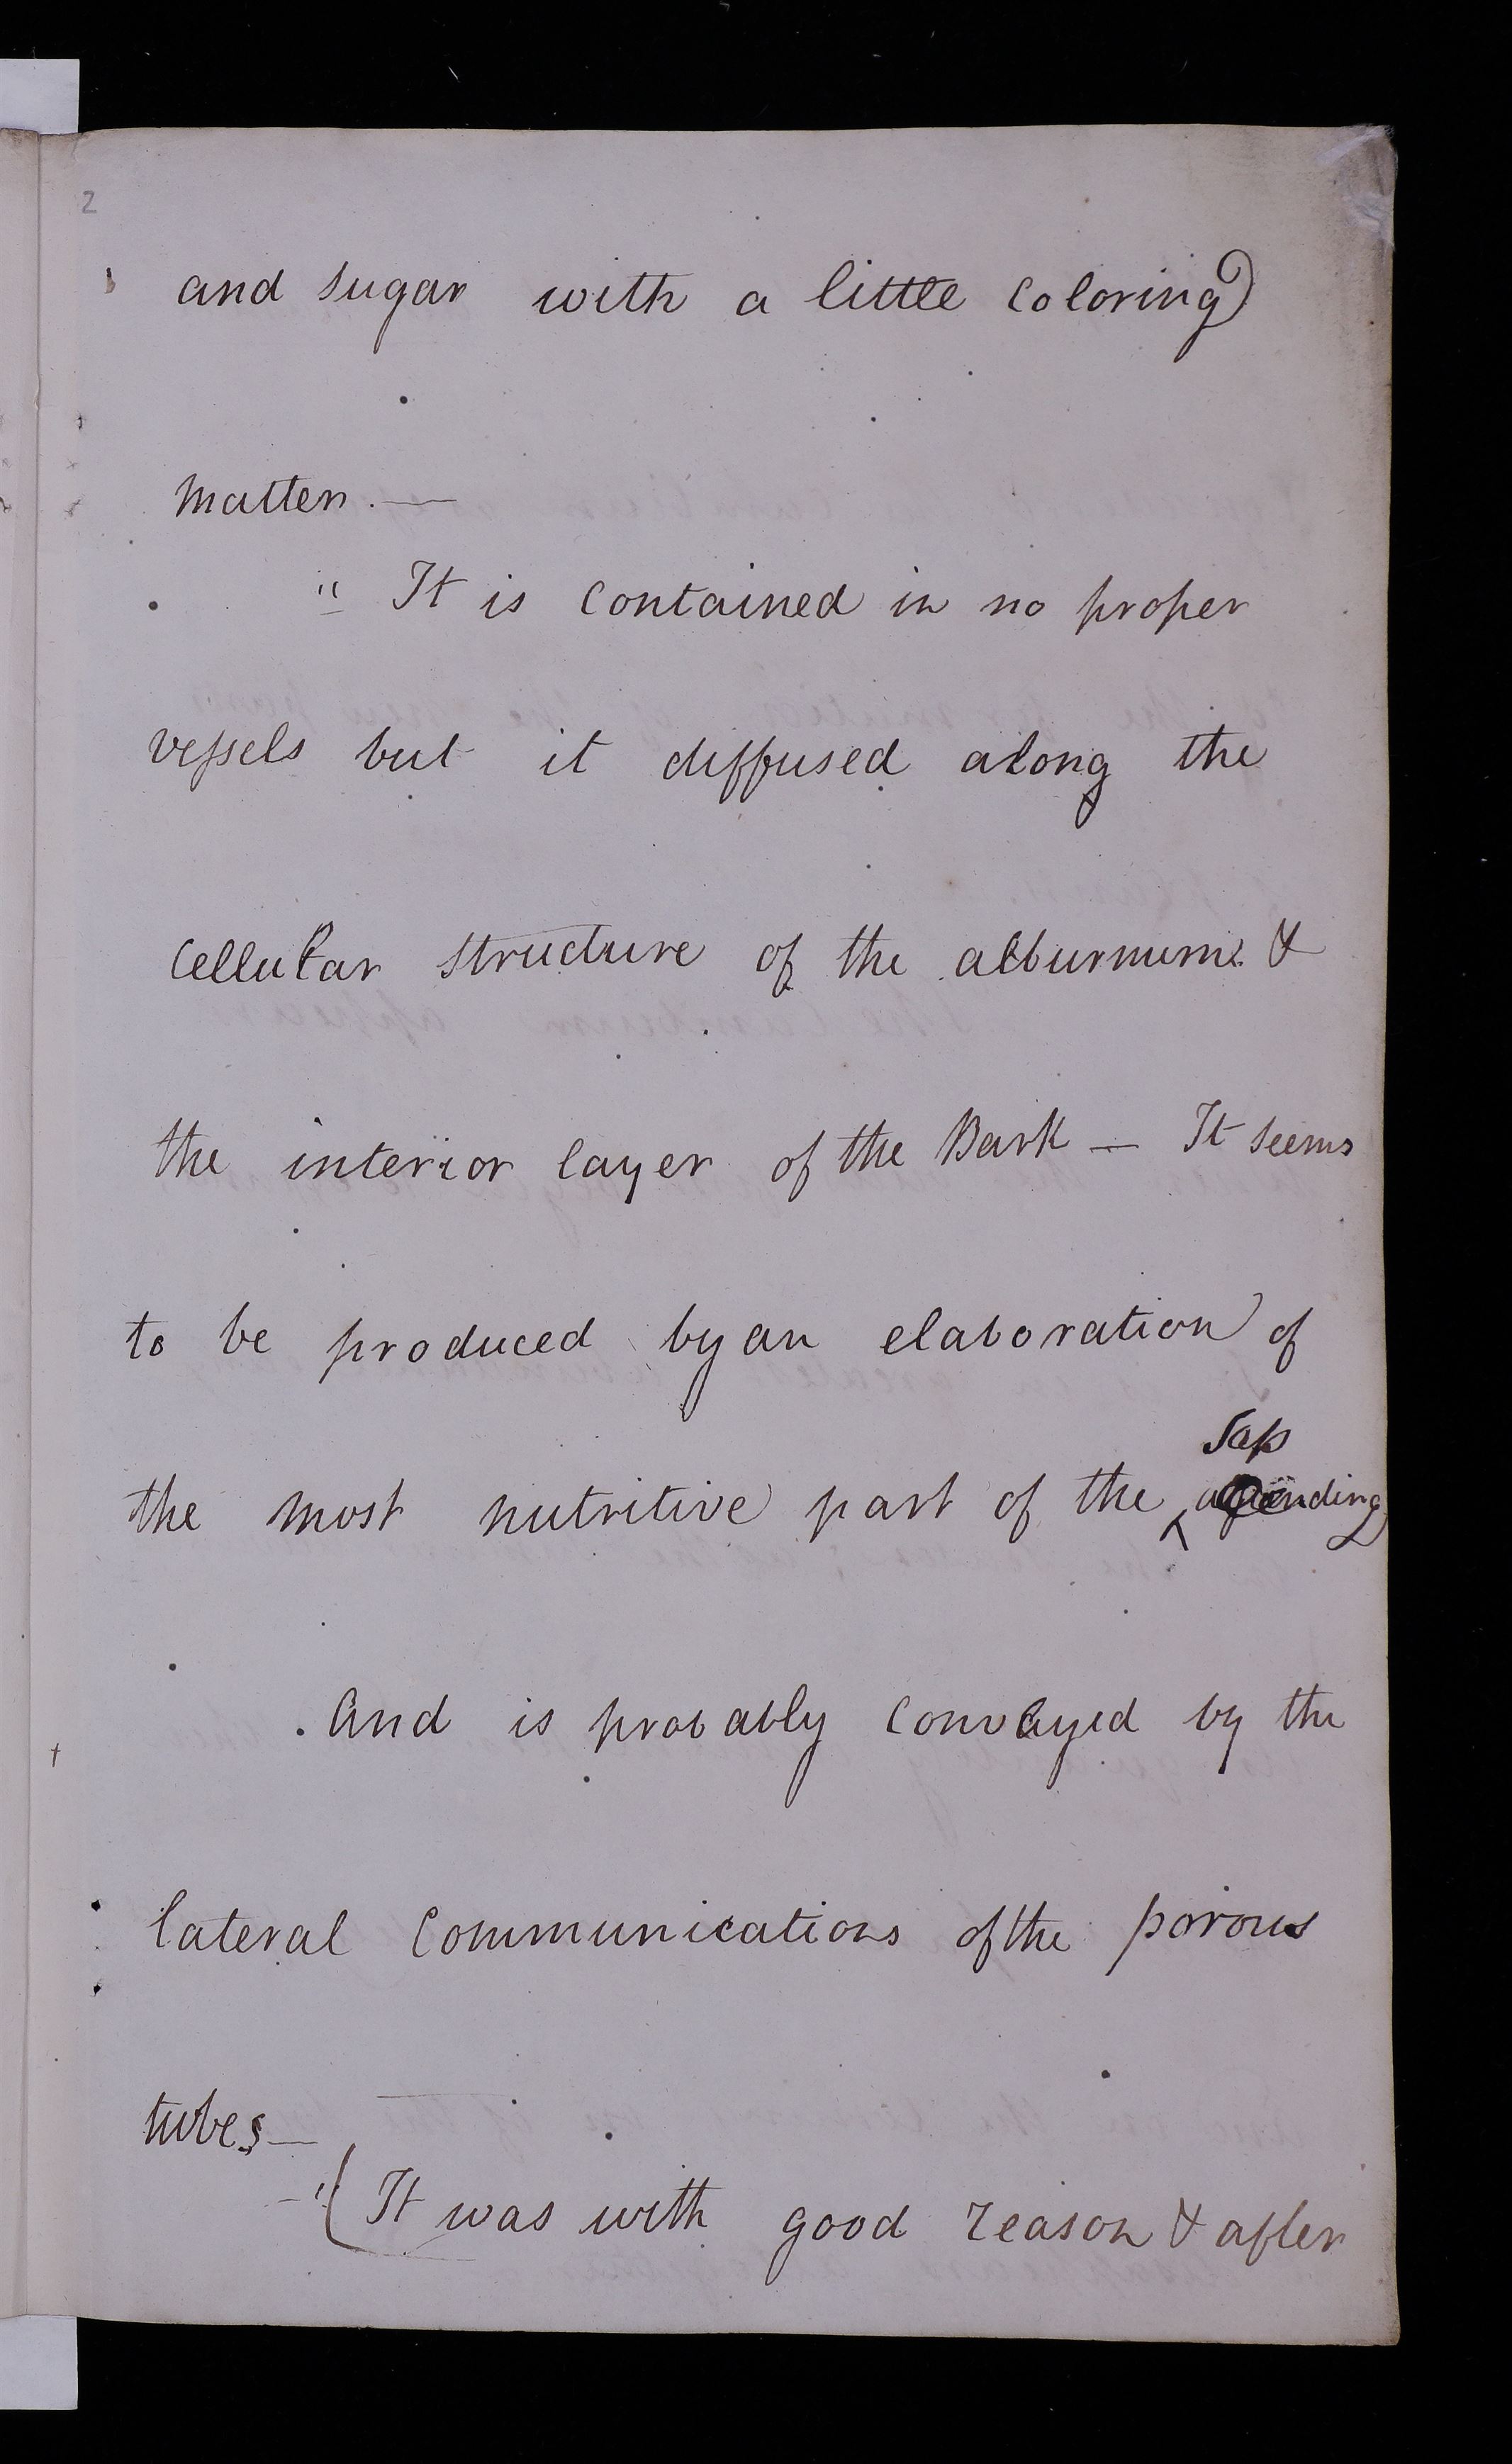 2
and sugar with a little coloring
matter. —
" It is contained in no proper
vessels but it diffused along the
cellular structure of the alburnum &
the interior layer of the Bark — It seems
to be produced by an elaboration of
Sap
the most nutritive part of the ^
And is probably conveyed by the
lateral communications of the porous
tubes —
—"( It was with good reason & after